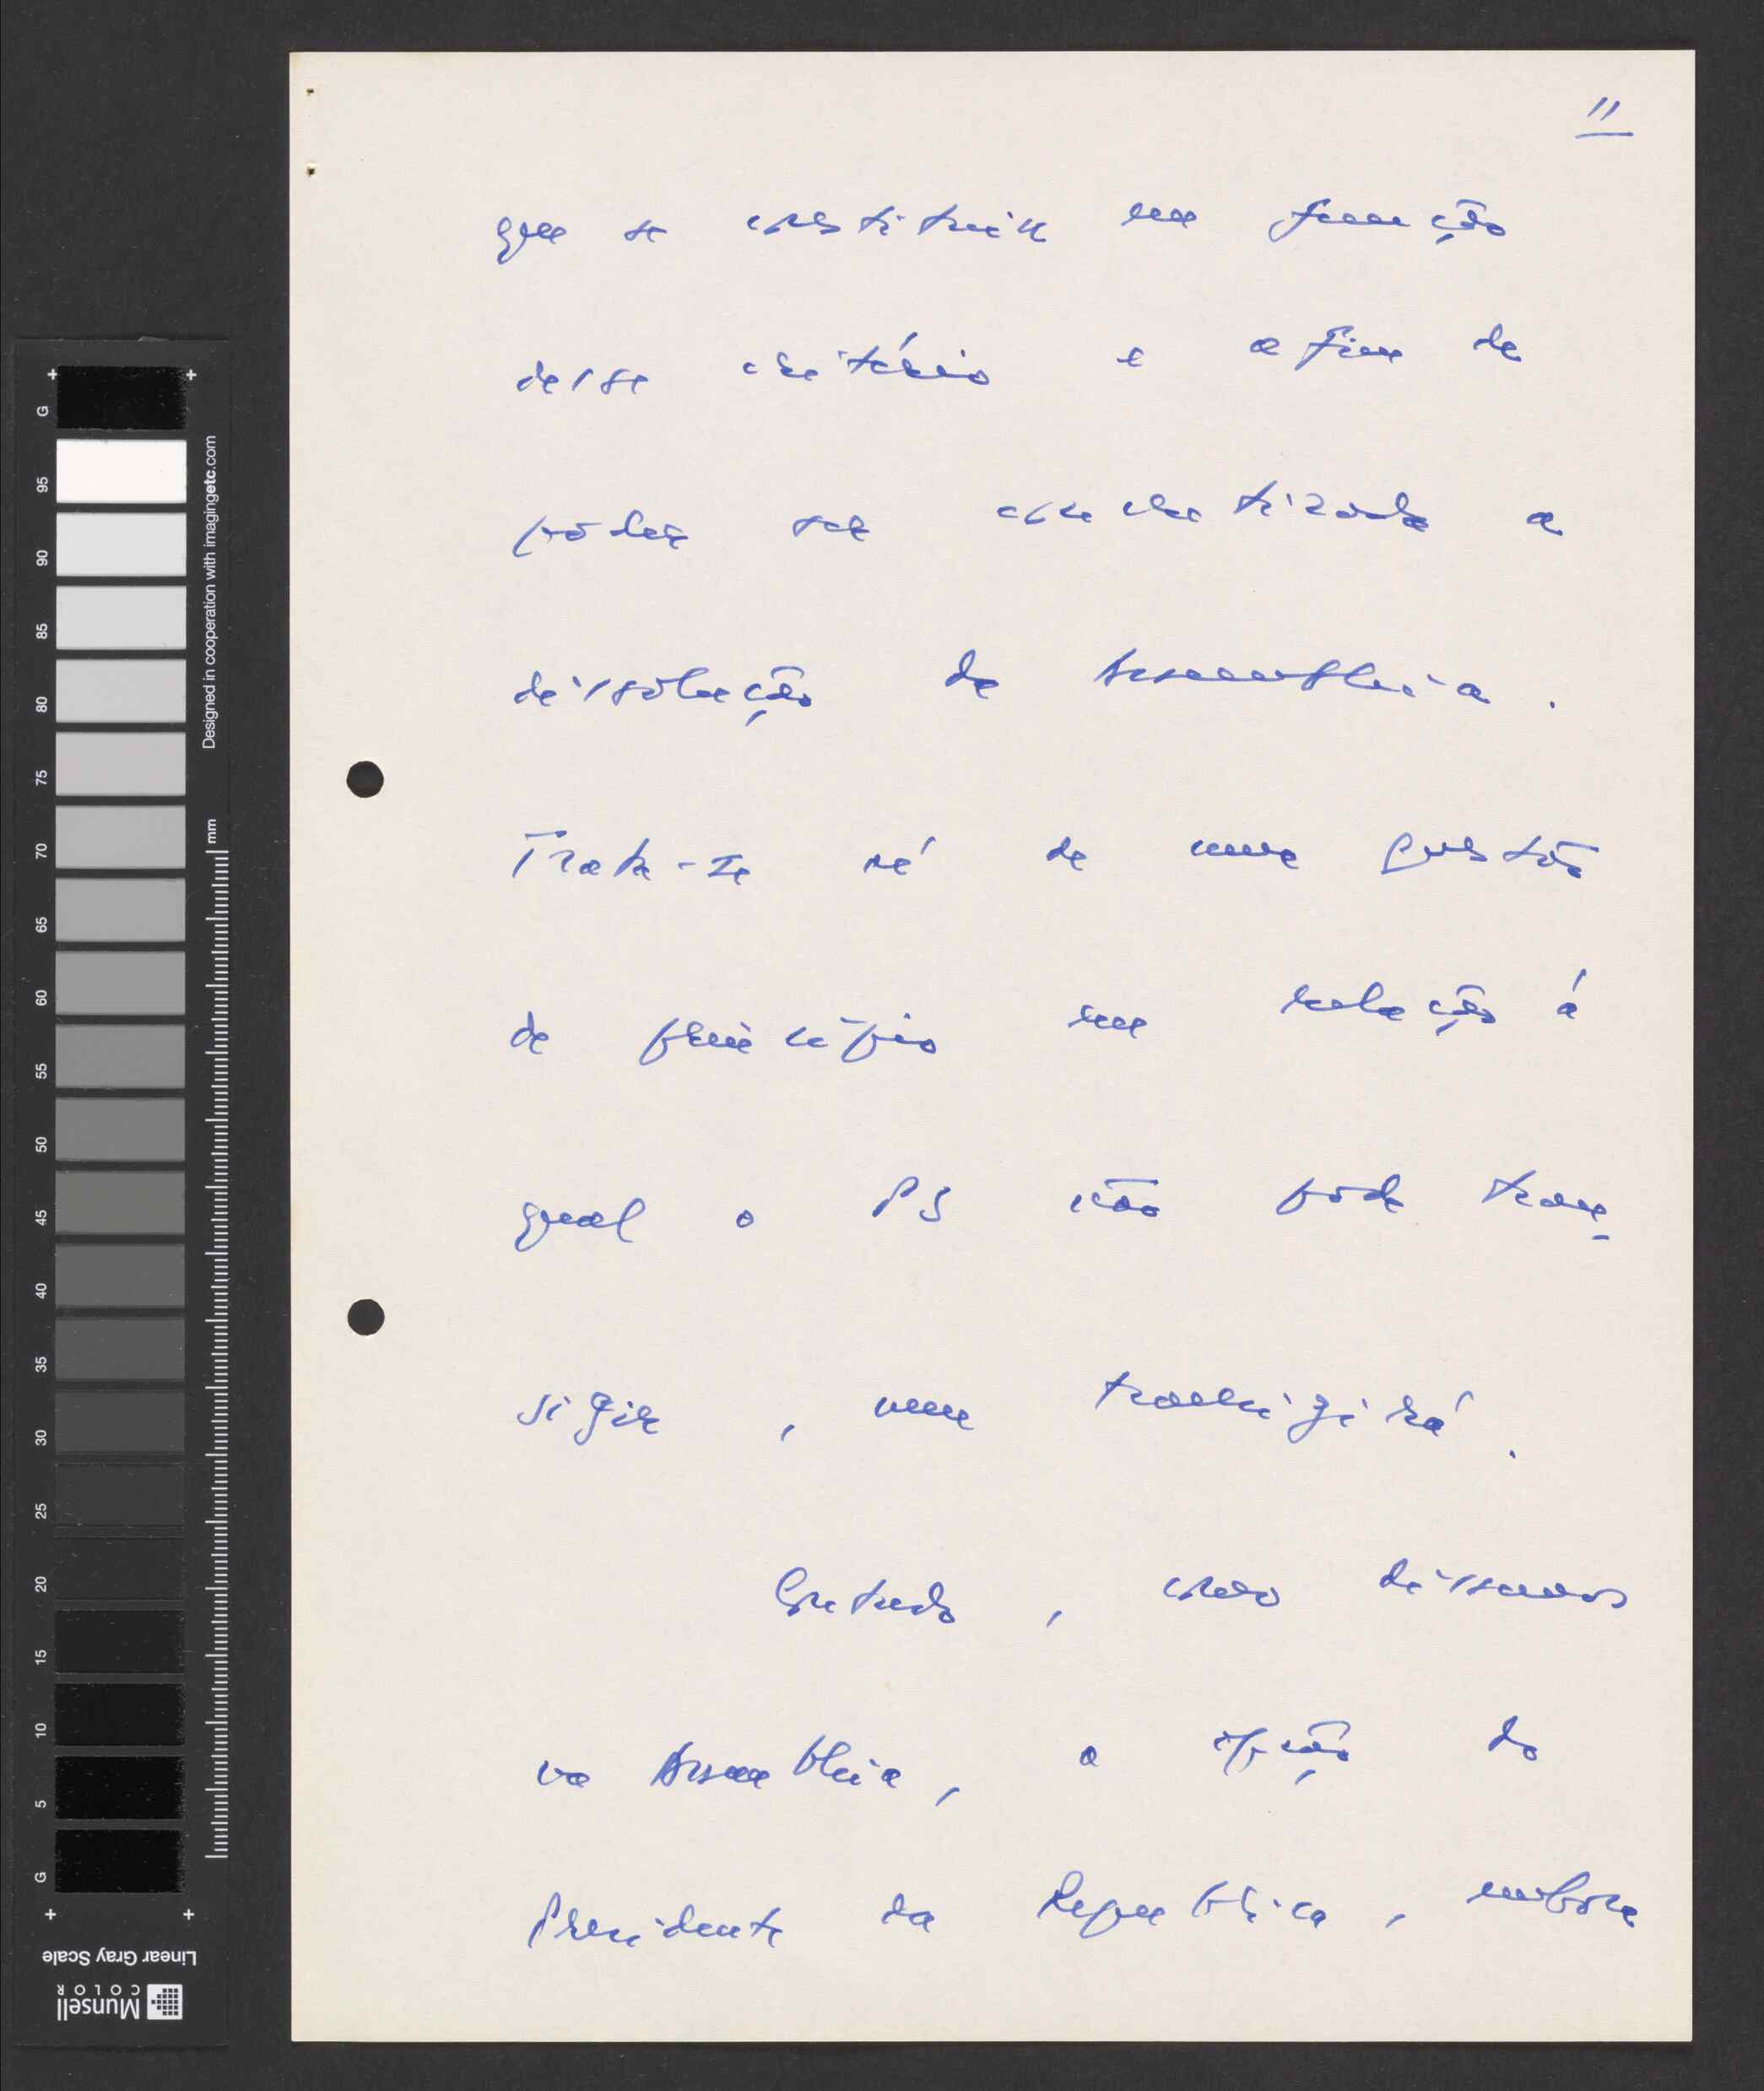 11
que se constituir em função
desse critério e a fim de
poder ser concretizada a
dissolução da Assembleia.
Trata-se só de uma questão
de princípio em relação á
qual o PS não pode tran-
sigir, nem transigirá.
Contudo, como dissemos
na Assembleia, a opção do
Presidente da Republica, embora
G
95
90
85
80
75
70
65
60
55
50
45
40
35
30
25
20
15
10
5
G
Designed in cooperation with imagingetc.com
mm
Linear Gray Scale
Munsell
COLOR